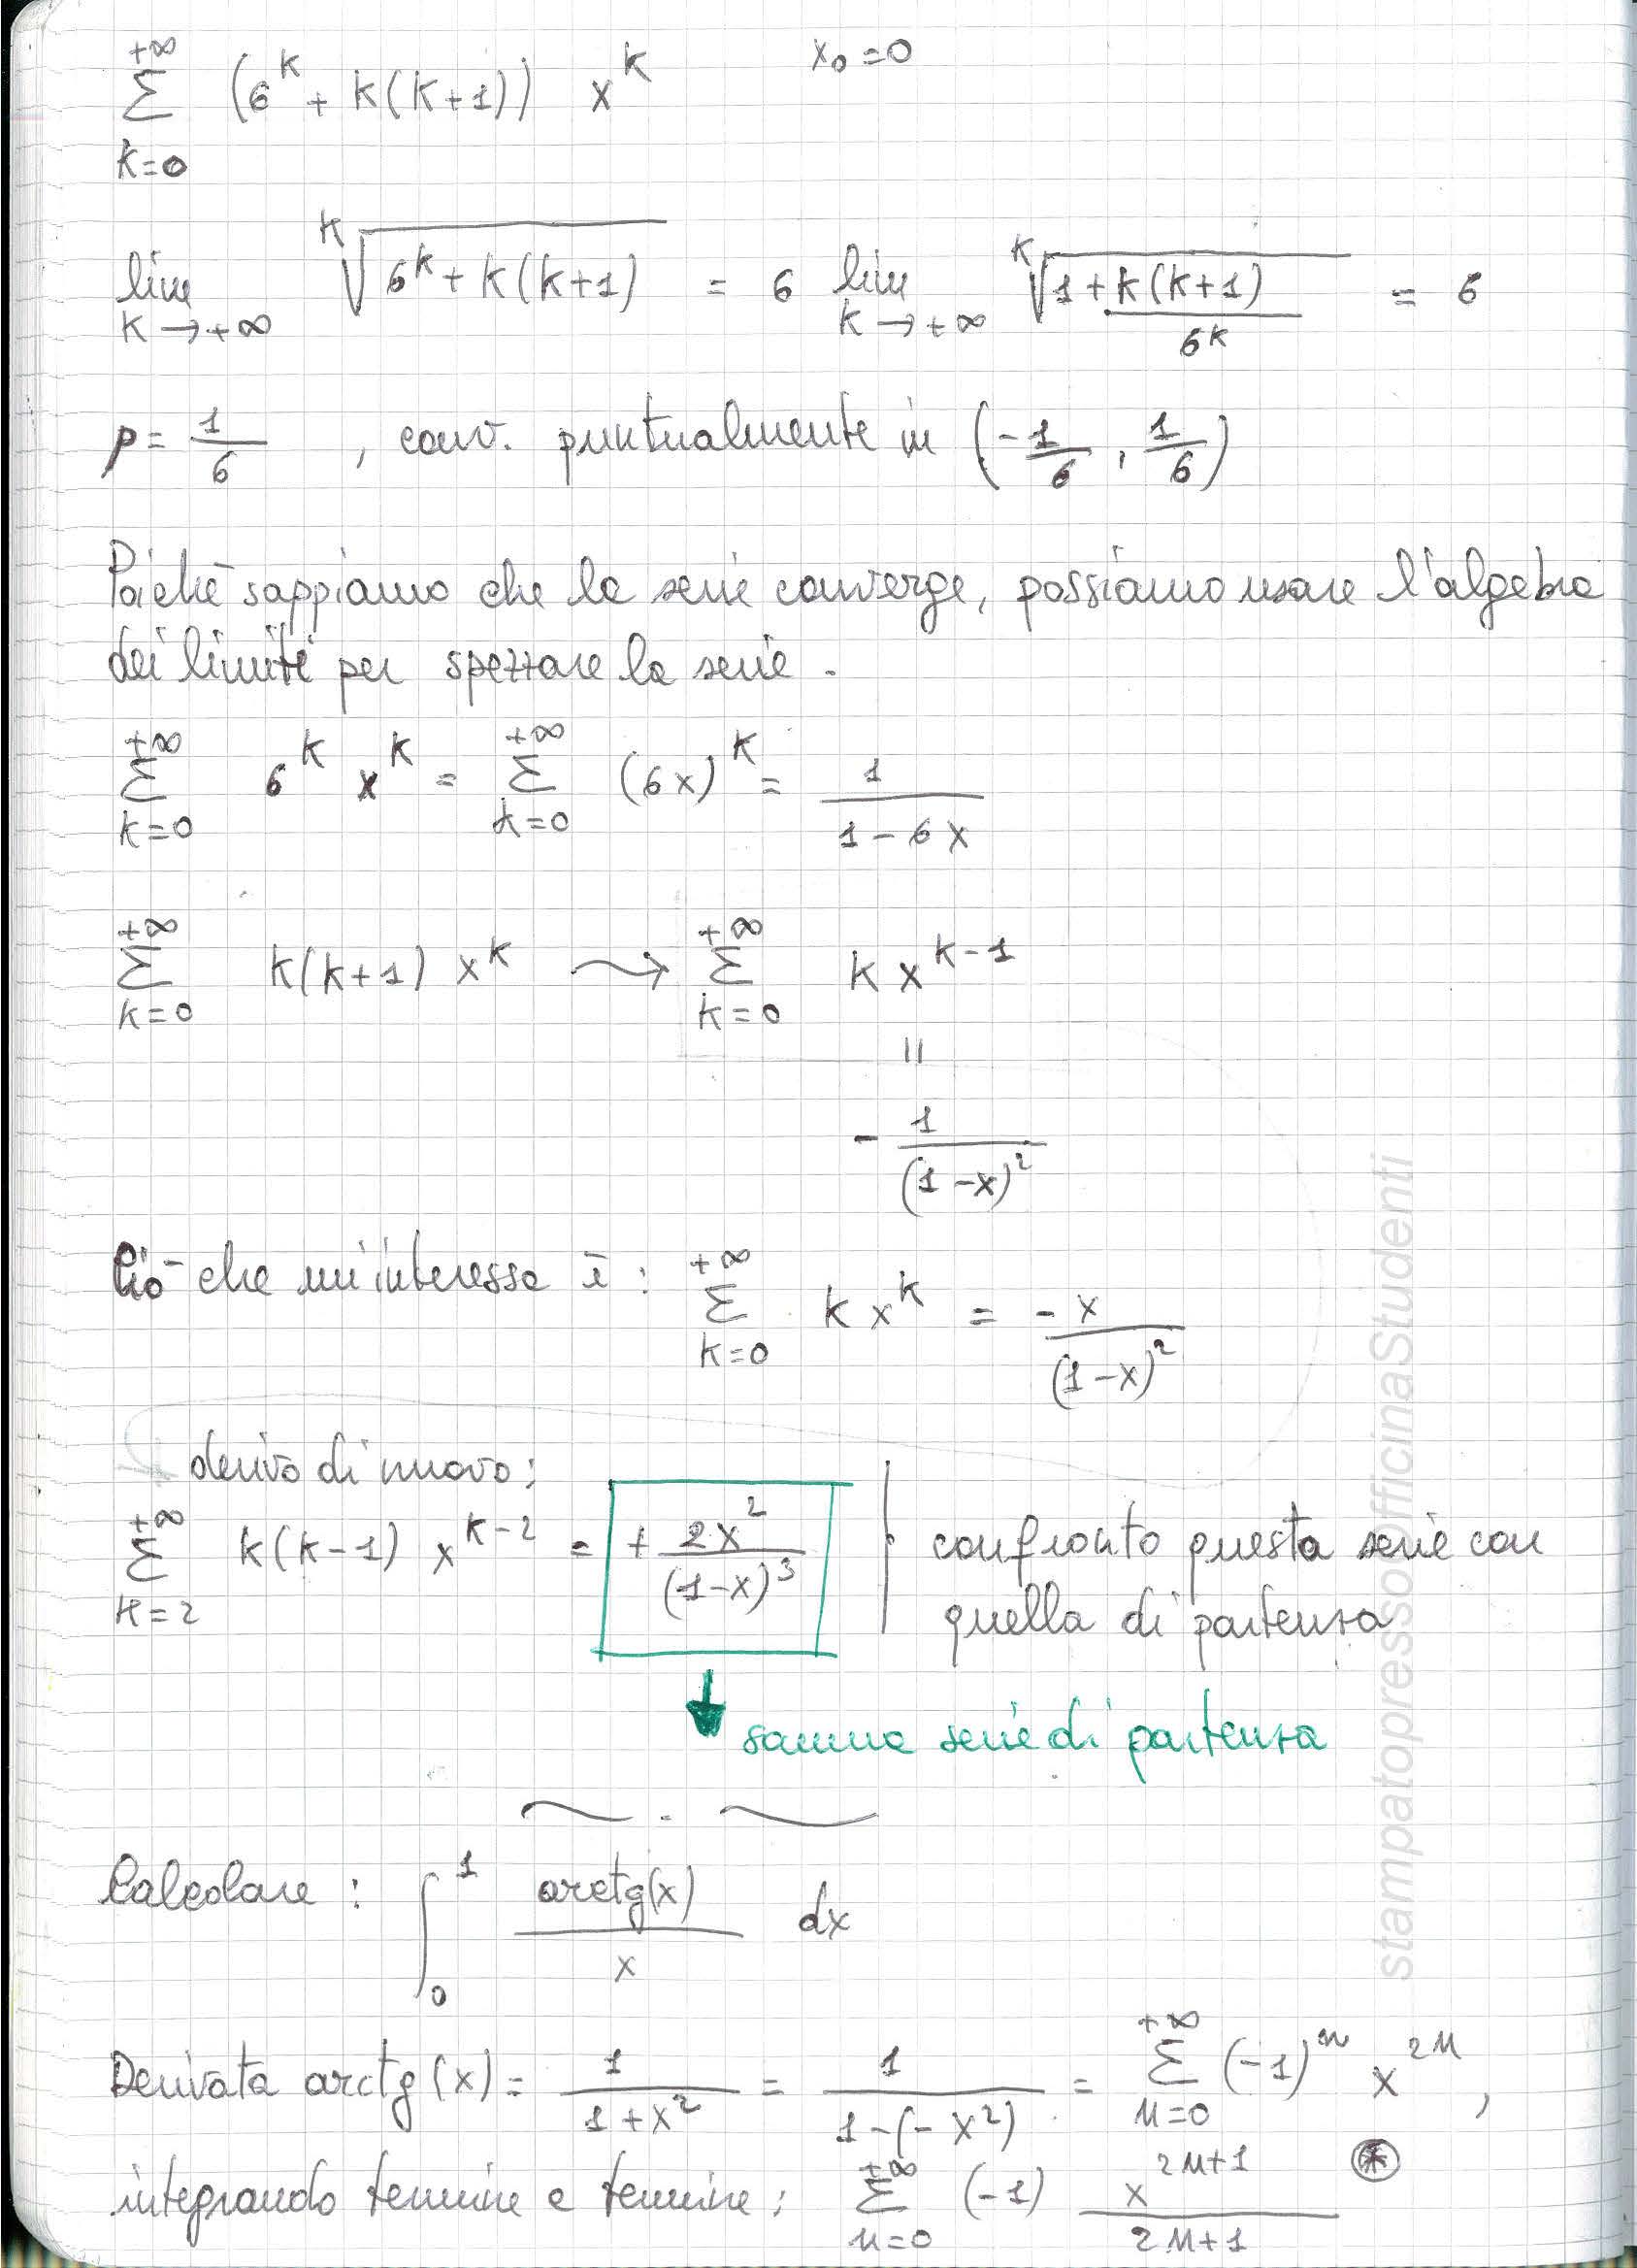 +∞ Σ k=0 (6^k + k(k+1)) x^k x₀=0
lim k→+∞ ᵏ√(6^k + k(k+1)) = 6 lim k→+∞ ᵏ√(1 + k(k+1)/6^k) = 6
ρ = 1/6 , conv. puntualmente in (-1/6 , 1/6)
Poichè sappiamo che la serie converge, possiamo usare l'algebra
dei limiti per spezzare la serie.
+∞ Σ k=0 6^k x^k = +∞ Σ k=0 (6x)^k = 1/(1-6x)
+∞ Σ k=0 k(k+1) x^k ⤳ +∞ Σ k=0 k x^(k-1)
||
- 1/(1-x)^2
Ciò che mi interessa è : +∞ Σ k=0 k x^k = -x/(1-x)^2
derivo di nuovo:
+∞ Σ k=2 k(k-1) x^(k-2) = + 2x^2/(1-x)^3
confronto questa serie con
quella di partenza
somma serie di partenza
Calcolare : ∫₀¹ arctg(x)/x dx
Derivata arctg(x) = 1/(1+x^2) = 1/(1-(-x^2)) = +∞ Σ n=0 (-1)^n x^(2n) ,
integrando termine a termine: +∞ Σ n=0 (-1) x^(2n+1)/(2n+1) ⊛
stampatopressoOfficinaStudenti